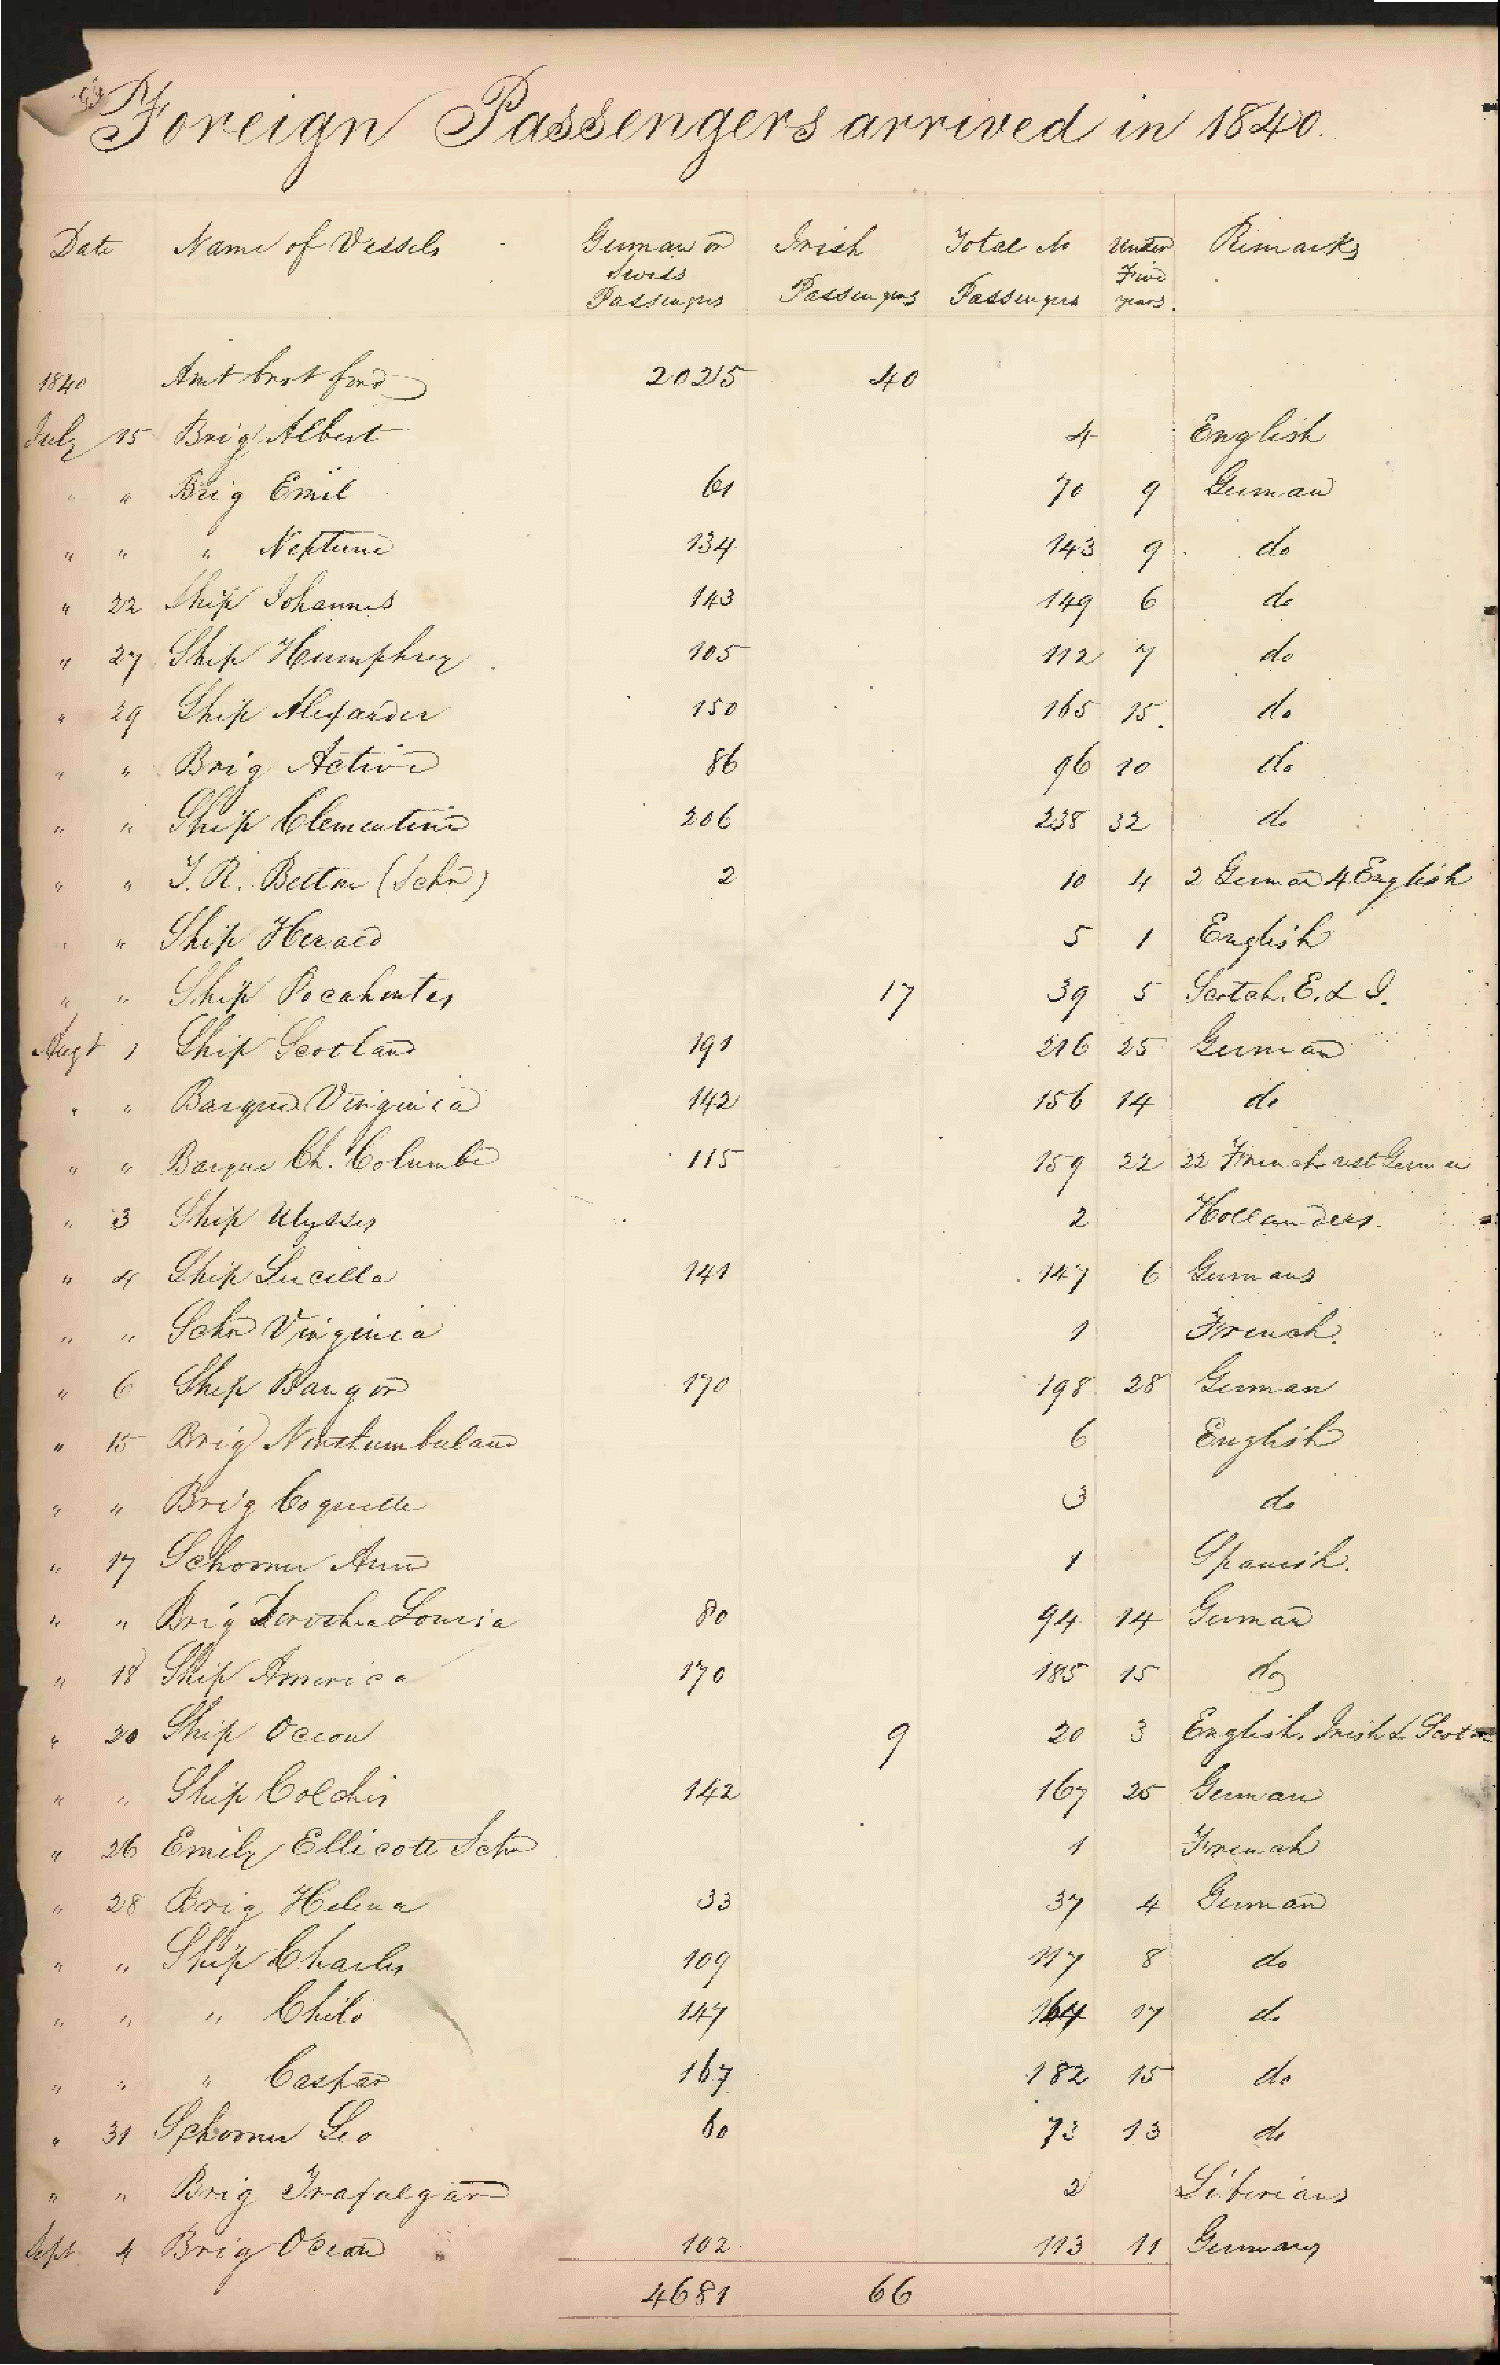 Foreign Passengers arrived in 1840.
Date Name of Vessels German or Swiss Passengers Irish Passengers Total No Passengers Under Five years. Remarks
1840 Amt brot ford 2025 40
July 15 Brig Albert 4 English
" " Brig Emil 61 70 9 German
" " " Neptune 134 143 9 do
" 22 Ship Johannes 143 149 6 do
" 27 Ship Humphrey 105 112 7 do
" 29 Ship Alexander 150 165 15 do
" " Brig Active 86 96 10 do
" " Ship Clementine 206 238 32 do
" " J. R. (Schr) 2 10 4 2 German 4 English
" " Ship Herald 5 1 English
" " Ship Pocahontas 17 39 5 Scotch. E. & I.
Augt 1 Ship Scotland 191 216 25 German
" " Barque Virginia 142 156 14 do
" " Barque Ch. Columbe 115 159 22 22 French rest German
" 3 Ship Ulysses 2 Hollanders.
" 4 Ship Lucilla 141 147 6 Germans
" " Schr Virginia 1 French.
" 6 Ship Bangor 170 198 28 German
" 15 Brig Northumberland 6 English
" " Brig Coquette 3 do
" 17 Schooner Ann 1 Spanish.
" " Brig Dorothea Louisa 80 94 14 German
" 18 Ship America 170 185 15 do
" 20 Ship Ocean 9 20 3 English, Irish & Scotch
" " Ship Colchis 142 167 25 German
" 26 Emily Ellicott Schr 1 French
" 28 Brig Helena 33 37 4 German
" " Ship Charles 109 117 8 do
" " " Chilo 147 164 17 do
" " " Caspar 167 182 15 do
" 31 Schooner Leo 60 73 13 do
" " Brig Trafalgar 2 Liberians
Sept 4 Brig Ocean 102 113 11 Germany
4681 66